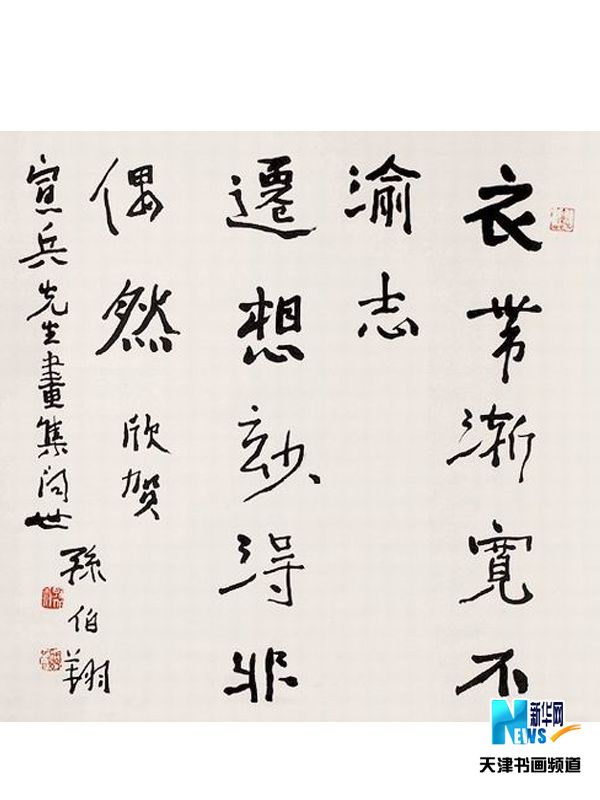 衣带渐寬不
渝志
遷想玅得非
偶然 欣贺
宣兵先生畫集问世
孫伯翔
新华网
NEWS
天津书画频道